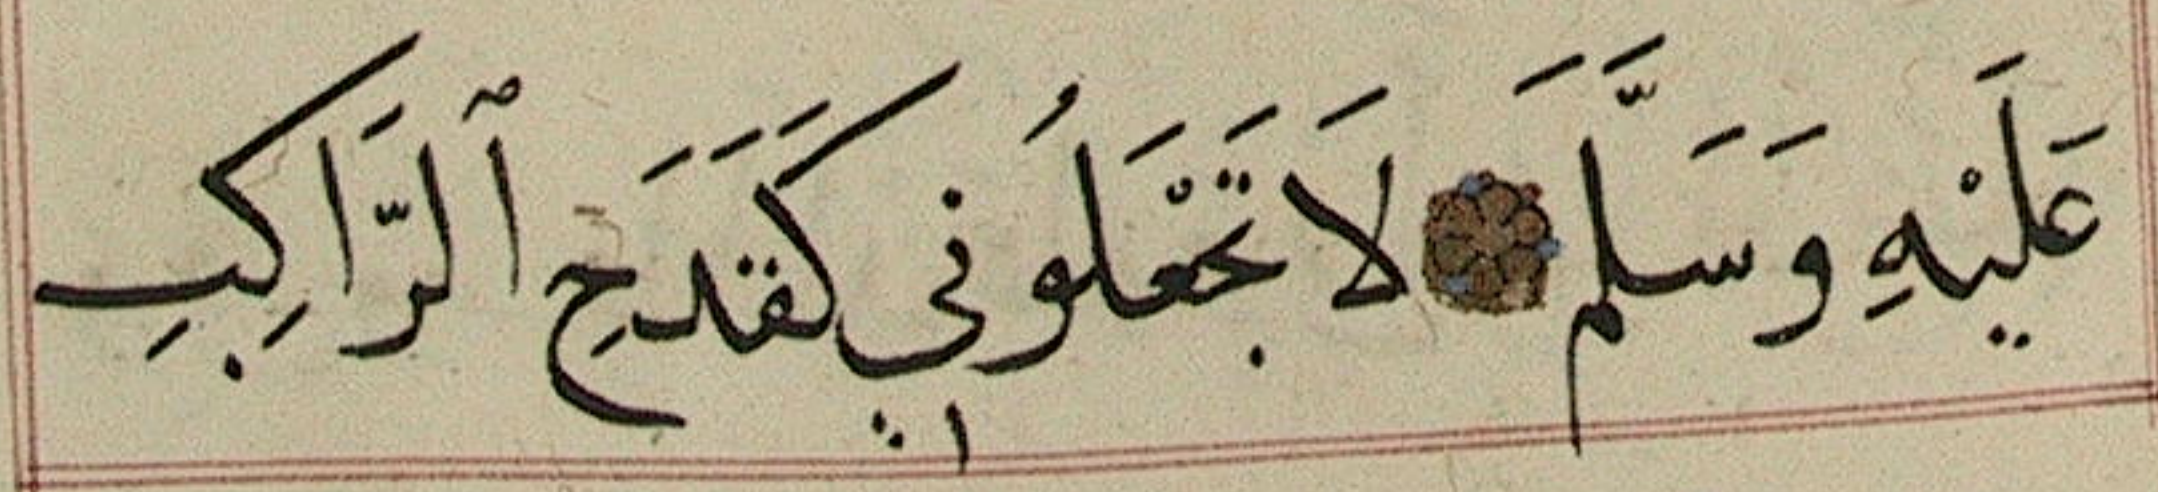 عَلَيْهِ وَسَلَّمَ لَا تَجْعَلُونِي كَقَدَحِ ٱلرَّاكِبِ